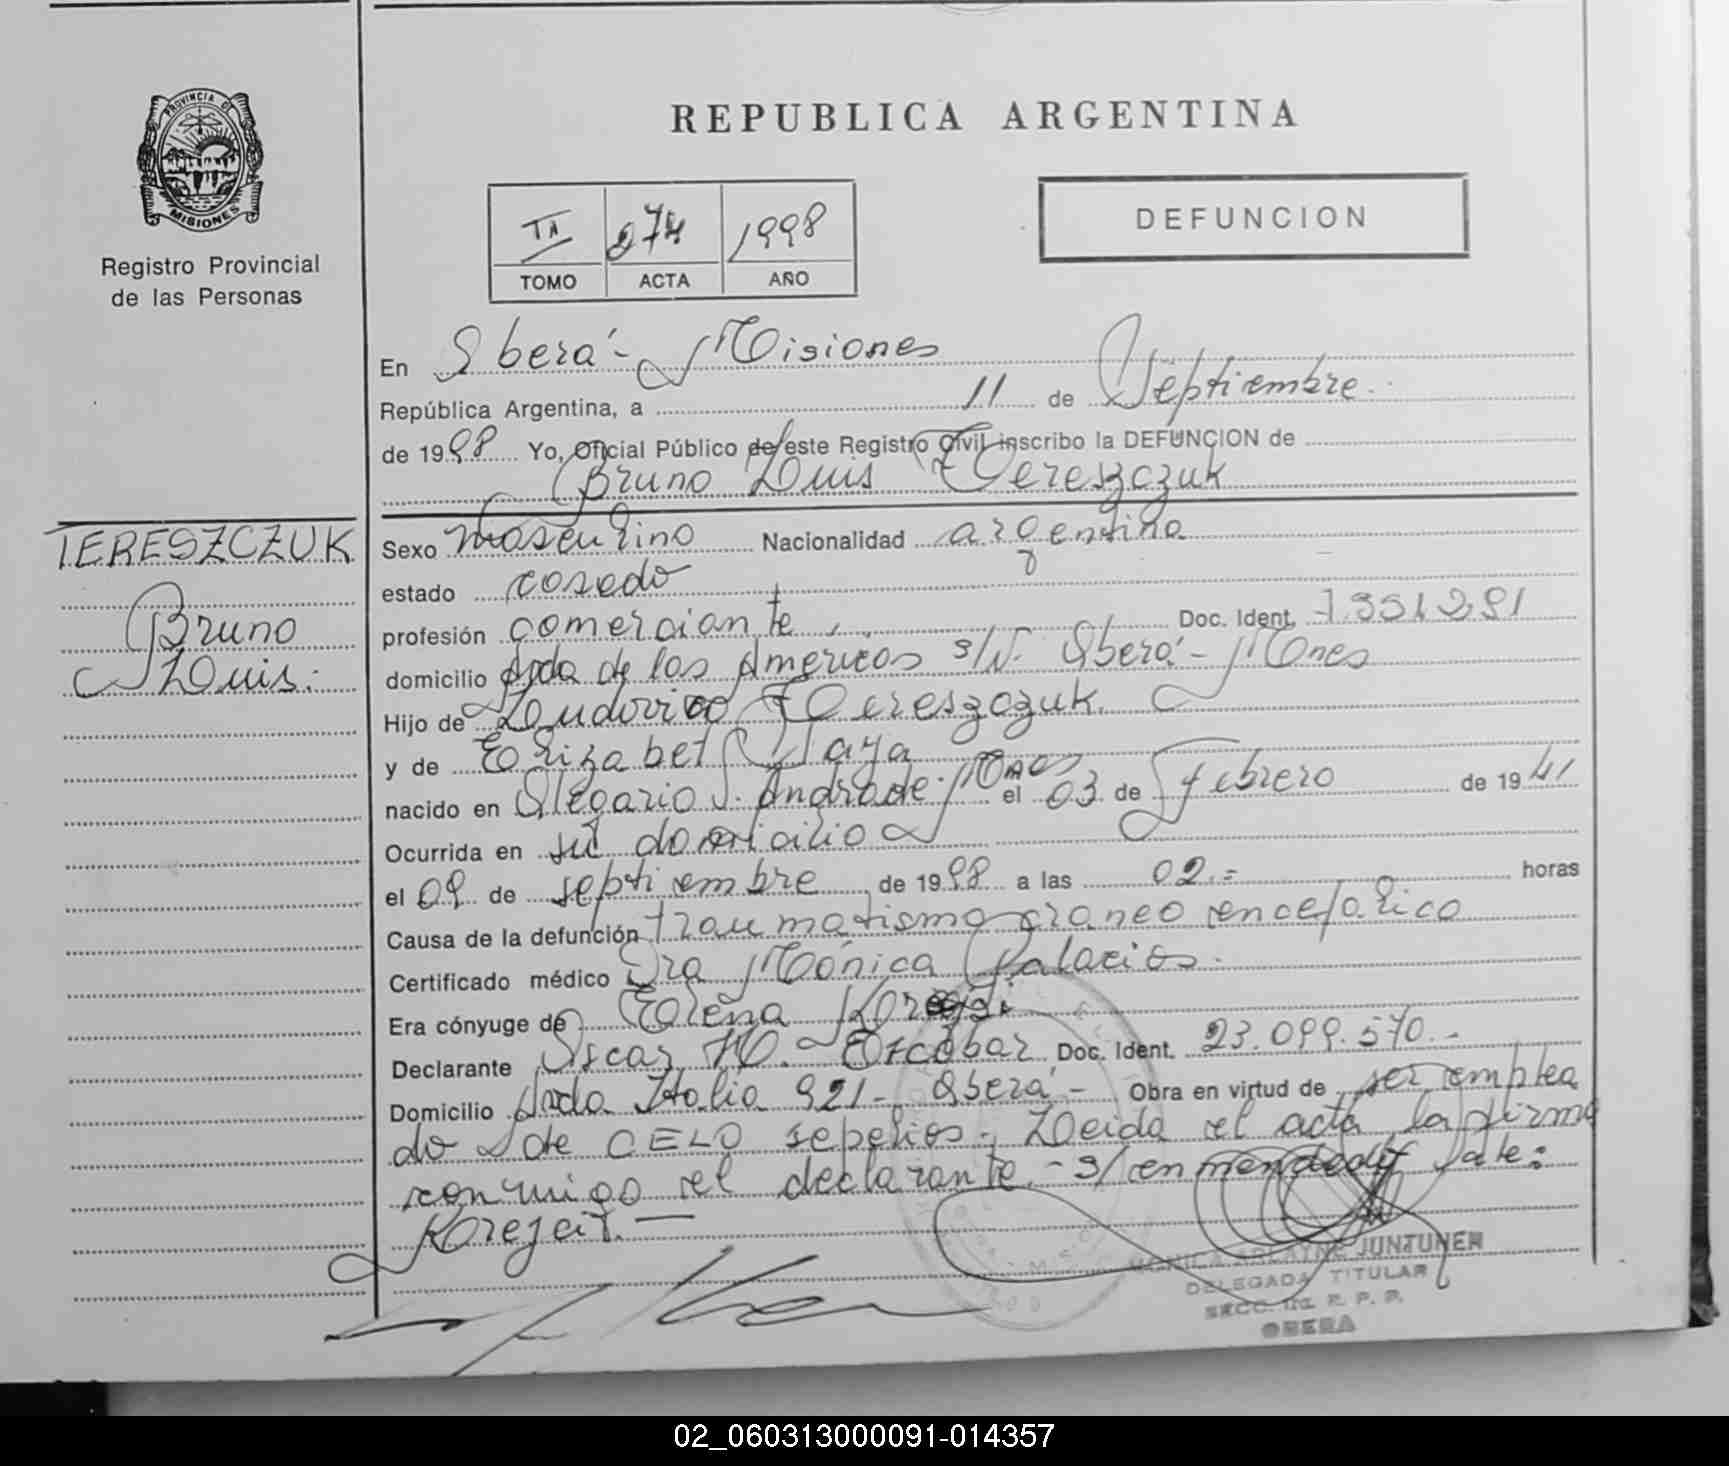 PROVINCIA DE
MISIONES
Registro Provincial
de las Personas
REPUBLICA ARGENTINA
274 1998
TOMO ACTA AÑO
DEFUNCION
En Oberá - Misiones
República Argentina, a 11 de Septiembre
de 1998 Yo, Oficial Público de este Registro Civil inscribo la DEFUNCION de
Bruno Luis Tereszczuk
TERESZCZUK
Bruno
Luis.
Sexo Masculino Nacionalidad argentina
estado casado
profesión comerciante Doc. Ident.
domicilio Avda de las Americas s/N. Oberá - Mnes
Hijo de Ludovico Tereszczuk.
y de Elizabet
nacido en Olegario V. Andrade - Mnes el 03 de febrero de 1941
Ocurrida en su domicilio
el 09 de septiembre de 1998 a las 02.= horas
Causa de la defunción traumatismo craneo encefalico
Certificado médico Dra Mónica Palacios.
Era cónyuge de Elena
Declarante Oscar Escobar Doc. Ident. 23.099.570.-
Domicilio Avda Italia 921 - Oberá - Obra en virtud de ser emplea
do de CELO sepelios. Leida el acta la firma
conmigo el declarante. - s/enmendado Vale:
Krejci. —
MONICA ARLAYNE JUNTUNEN
DELEGADA TITULAR
SECC. R. P. P.
OBERA
02_060313000091-014357